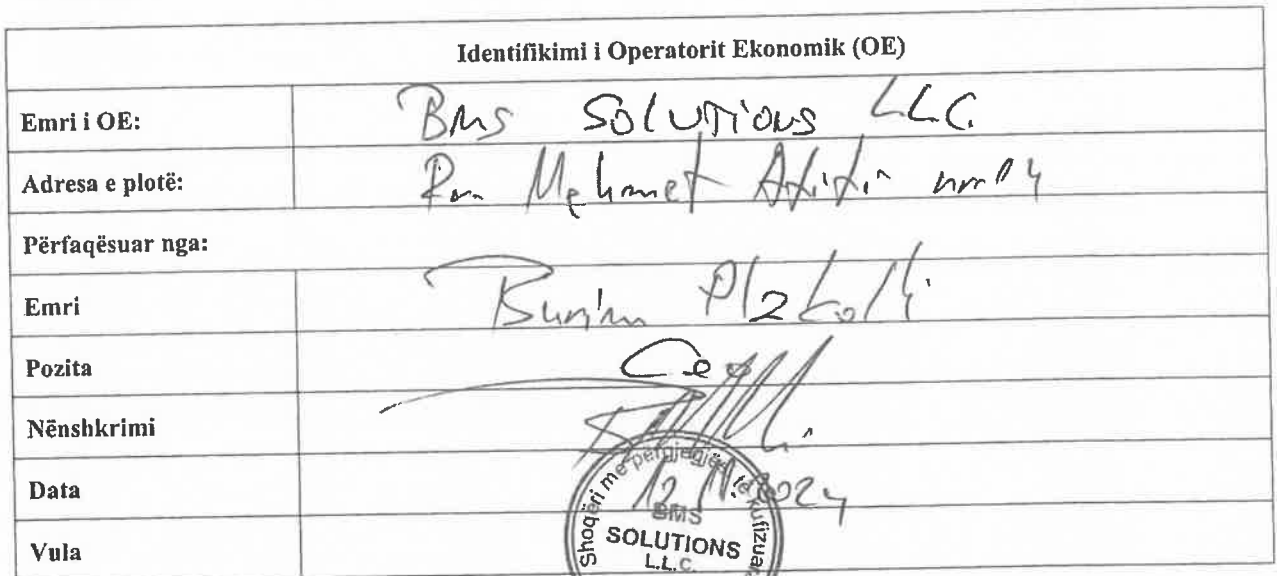 Identifikimi i Operatorit Ekonomik (OE)
Emri i OE: BMS SOLUTIONS LLC
Adresa e plotë: Rr. Mehmet
Përfaqësuar nga:
Emri Burim
Pozita Ceo
Nënshkrimi
Data 12.11.2024
Vula
Shoqëri me përgjegjësi të kufizuar
BMS
SOLUTIONS
L.L.C.